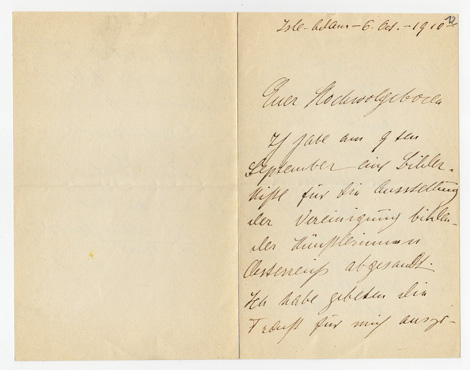 6. Oct. – 1910
Euer Hochwolgeboren
Ich habe am 9ten
September eine Bilder-
kiste für die Ausstellung
der Vereinigung bilden-
der Künstlerinnen
Oesterreichs abgesandt.
Ich habe gebeten die
für mich